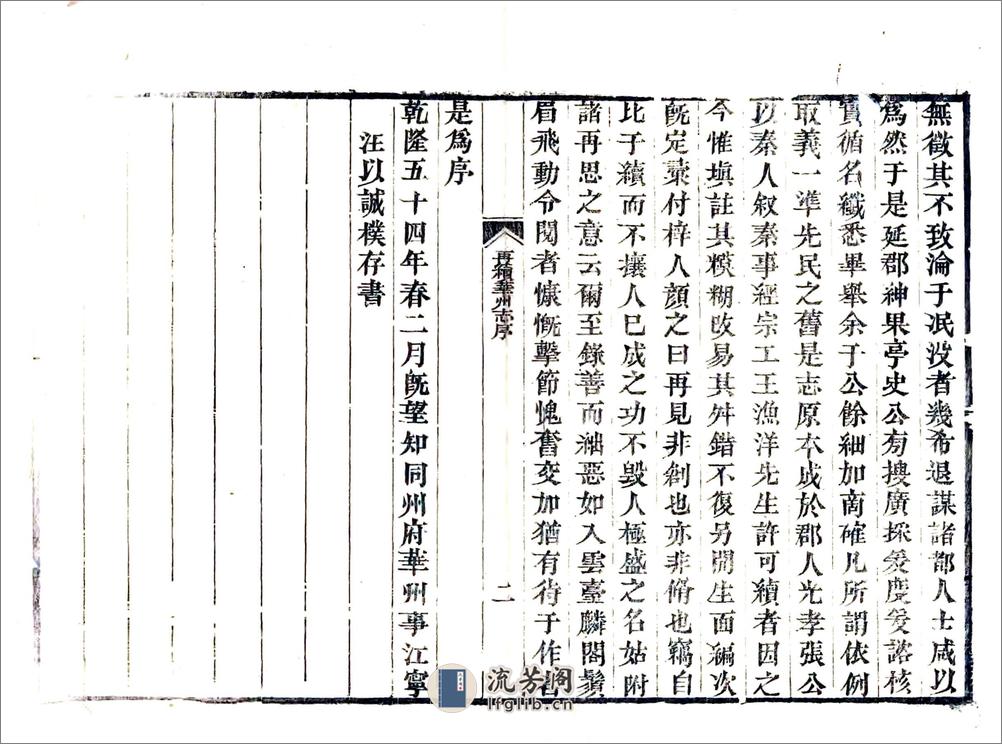 無徵其不致淪于泯没者幾希退謀諸都人士咸以
為然于是延郡紳果亭史公旁搜廣採爰度爰諮核
實循名纖悉畢舉余于公餘細加商確凡所謂依例
取義一準先民之舊是志原本成於郡人光孝張公
以秦人叙秦事經宗工王漁洋先生許可續者因之
今惟填註其糢糊改易其舛錯不復另開生面編次
既定槀付梓人顔之曰再見非創也亦非脩也竊自
比于續而不攘人已成之功不毁人極盛之名姑附
諸再思之意云爾至錄善而絀惡如入雲臺麟閣鬚
眉飛動令閱者慷慨擊節愧奮交加猶有待于作者
再續華州志序
二
是為序
乾隆五十四年春二月既望知同州府華州事江寧
汪以誠樸存書
流芳阁
lfglib.cn